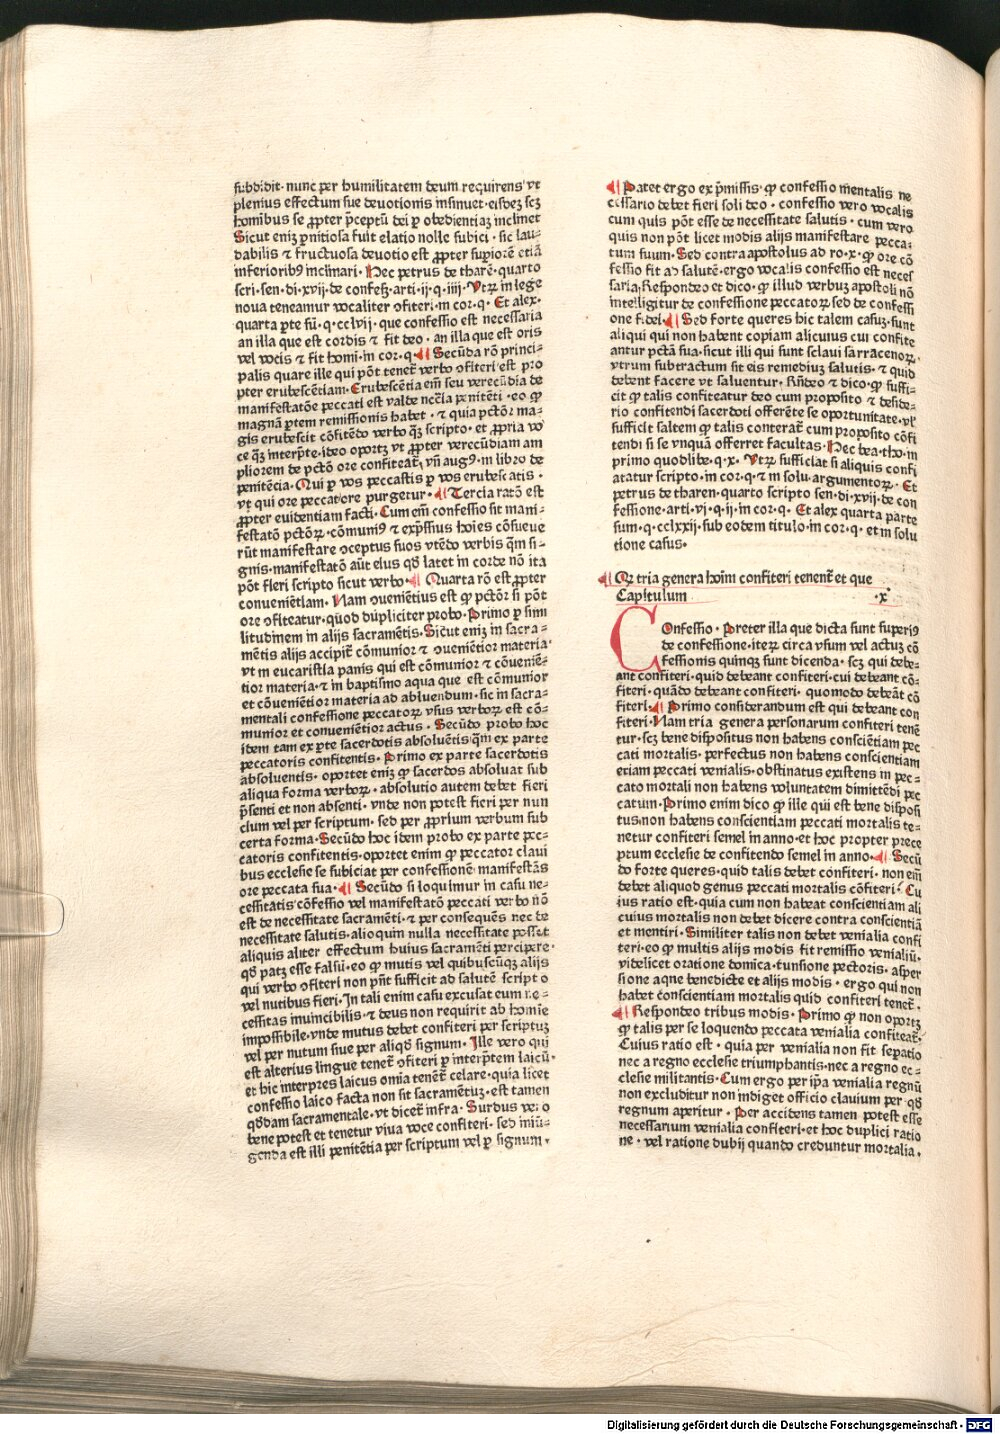 subdidit· nunc per humilitatem deum requirens vt
plenius effectum sue deuotionis insinuet· eisdeꝫ scꝫ
homibus se ꝓpter p̄ceptū dei ꝑ obedientiaꝫ inclinet
Sicut eniꝫ ꝑnitiosa fuit elatio nolle subici · sic lau⸗
dabilis ⁊ fructuosa deuotio est ꝓpter suꝑiorē etiā
inferioribꝰ inclinari· Hec petrus de tharē· quarto
scri· sen· di· xvij· de confeſ· arti· ij· q· iiij· Vtꝝ in lege
noua teneamur vocaliter ꝯfiteri· in cor· q· Et alex·
quarta ꝑte sū· q· cclvij · que confessio est necessaria
an illa que est cordis ⁊ fit deo · an illa que est oris
vel vocis ⁊ fit homi· in cor· q· ¶ Secūda rō princi⸗
palis quare ille qui pōt tenet̄ verbo ꝯfiteri est pro
pter erubescētiam· Erubescētia em̄ seu verecūdia de
manifestatōe peccati est valde nccīa penitēti · eo ꝙ
magnā ꝑtem remissionis habet · ⁊ quia pctōr ma⸗
gis erubescit cōfitēdo verbo qꝫ scripto· et ꝓpria vo
ce qꝫ interp̄te· ideo oportꝫ vt ꝓpter verecūdiam am
pliorem de pctō ore confiteat̄· vn̄ augꝰ· in libro de
penitēcia· Qui ꝑ vos peccastis ꝑ vos erubescatis ·
vt qui ore peccat ore purgetur · ¶ Tercia ratō est
ꝓpter euidentiam facti· Cum em̄ confessio sit mani⸗
festatō pctōꝝ · cōmuniꝰ ⁊ exp̄ssius hoīes cōsueue
rūt manifestare ꝯceptus suos vtēdo verbis qm̄ si⸗
gnis· manifestatō aūt eius qd̄ latet in corde nō ita
pōt fieri scripto sicut verbo· ¶ Quarta rō est ꝓpter
conuenietīam· Nam ꝯueniētius est ꝙ pctōr si pōt
ore ꝯfiteatur· quod dupliciter probo· Primo ꝑ simi
litudinem in alijs sacramētis· Sicut eniꝫ in sacra⸗
mētis alijs accipit̄ cōmunior ⁊ ꝯueniētior materia·
vt in eucaristia panis qui est cōmunior ⁊ cōueniē⸗
tior materia· ⁊ in baptismo aqua que est cōmunior
et cōueniētior materia ad abluendum· sic in sacra⸗
mentali confessione peccatoꝝ vsus verboꝝ est cō⸗
munior et conueniētior actus · Secūdo probo hoc
idem tam ex ꝑte sacerdotis absoluētis qm̄ ex parte
peccatoris confitentis· Primo ex parte sacerdotis
absoluentis· oportet eniꝫ ꝙ sacerdos absoluat sub
aliqua forma verboꝝ· absolutio autem debet fieri
p̄senti et non absenti· vnde non potest fieri per nun
cium vel per scriptum· sed per ꝓprium verbum sub
certa forma· Secūdo hoc idem probo ex parte pec⸗
catoris confitentis· oportet enim ꝙ peccator claui
bus ecclesie se subiciat per confessionē manifestās
ore peccata sua· ¶ Secūdo si loquimur in casu ne⸗
cessitatis cōfessio vel manifestatō peccati verbo nō
est de necessitate sacramēti· ⁊ per consequēs nec de
necessitate salutis· alioquin nulla necessitate posset
aliquis aliter effectum huius sacramēti percipere·
qd̄ patꝫ esse falsū· eo ꝙ mutis vel quibuscūqꝫ alijs
qui verbo ꝯfiteri non pn̄t sufficit ad salutē scripto
vel nutibus fieri· In tali enim casu excusat eum ne⸗
cessitas inuincibilis· ⁊ deus non requirit ab homīe
impossibile· vnde mutus debet confiteri per scriptuꝫ
vel per nutum siue per aliqd̄ signum· Ille vero qui
est alterius lingue tenet̄ ꝯfiteri ꝑ interp̄tem laicū·
et hic interpres laicus omīa tenet̄ celare· quia licet
confessio laico facta non sit sacramētuꝫ· est tamen
qd̄dam sacramentale· vt dicet̄ infra· Surdus vero
bene potest et tenetur viua voce confiteri· sed iniū⸗
genda est illi penitētia per scriptum vel ꝑ signum·
¶ Patet ergo ex p̄missis· ꝙ confessio mentalis ne
cessario debet fieri soli deo · confessio vero vocalis
cum quis pōt esse de necessitate salutis · cum vero
quis non pōt licet modis alijs manifestare pecca⸗
tum suum· Sed contra apostolus ad ro· x· ꝙ ore cō
fessio fit ad salutē· ergo vocalis confessio est neces
saria· Respondeo et dico· ꝙ illud verbuꝫ apostoli nō
intelligitur de confessione peccatoꝝ sed de confessi
one fidei· ¶ Sed forte queres hic talem casuꝫ· sunt
aliqui qui non habent copiam alicuius cui confite
antur pctā sua· sicut illi qui sunt sclaui sarracenoꝝ·
vtrum subtractum sit eis remediuꝫ salutis· ⁊ quid
debent facere vt saluentur· Rn̄deo ⁊ dico· ꝙ suffi⸗
cit ꝙ talis confiteatur deo cum proposito ⁊ deside⸗
rio confitendi sacerdoti offerēte se oportunitate· vl̄
sufficit saltem ꝙ talis conterat̄ cum proposito cōfi
tendi si se vnquā offerret facultas· Hec bea· tho· in
primo quodlibe· q· x· Vtꝝ sufficiat si aliquis confi
atatur scripto· in cor· q· ⁊ in solu· argumentoꝝ· Et
petrus de tharen· quarto scripto sen· di· xvij· de con
fessione· arti· vj· q· ij· in cor· q· Et alex quarta parte
sum· q· cclxxij· sub eodem titulo· in cor· q· et in solu
tione casus·
¶ Qꝫ tria genera hoīm confiteri tenent̄ et que
Capitulum ·x·
COnfessio · Preter illa que dicta sunt superiꝰ
de confessione· iteꝝ circa vsum vel actuꝫ cō
fessionis quinqꝫ sunt dicenda · scꝫ qui debe⸗
ant confiteri· quid debeant confiteri· cui debeant cō⸗
fiteri· quādo debeant confiteri· quomodo debeāt cō
fiteri· ¶ Primo considerandum est qui debeant con
fiteri· Nam tria genera personarum confiteri tenē
tur· scꝫ bene dispositus non habens conscientiam pec
cati mortalis· perfectus non habens conscientiam
etiam peccati venialis· obstinatus existens in pec⸗
cato mortali non habens voluntatem dimittēdi pec
catum· Primo enim dico ꝙ ille qui est bene disposi
tus non habens conscientiam peccati mortalis te⸗
netur confiteri semel in anno· et hoc propter prece
ptum ecclesie de confitendo semel in anno· ¶ Secū
do forte queres· quid talis debet confiteri· non em̄
debet aliquod genus peccati mortalis cōfiteri· Cu
ius ratio est· quia cum non habeat conscientiam ali
cuius mortalis non debet dicere contra conscientiā
et mentiri· Similiter talis non debet venialia confi
teri· eo ꝙ multis alijs modis fit remissio venialiū·
videlicet oratione domīca· tunsione pectoris· asper
sione aqne benedicte et alijs modis · ergo qui non
habet conscientiam mortalis quid confiteri tenet̄·
¶ Respondeo tribus modis· Primo ꝙ non oportꝫ
ꝙ talis per se loquendo peccata venialia confiteat̄·
Cuius ratio est · quia per venialia non fit sepatio
nec a regno ecclesie triumphantis· nec a regno ec⸗
clesie militantis· Cum ergo per ip̄a venialia regnū
non excluditur non indiget officio clauium per qd̄
regnum aperitur · Per accidens tamen potest esse
necessarium venialia confiteri· et hoc duplici ratio
ne · vel ratione dubij quando creduntur mortalia·
Digitalisierung gefördert durch die Deutsche Forschungsgemeinschaft - DFG